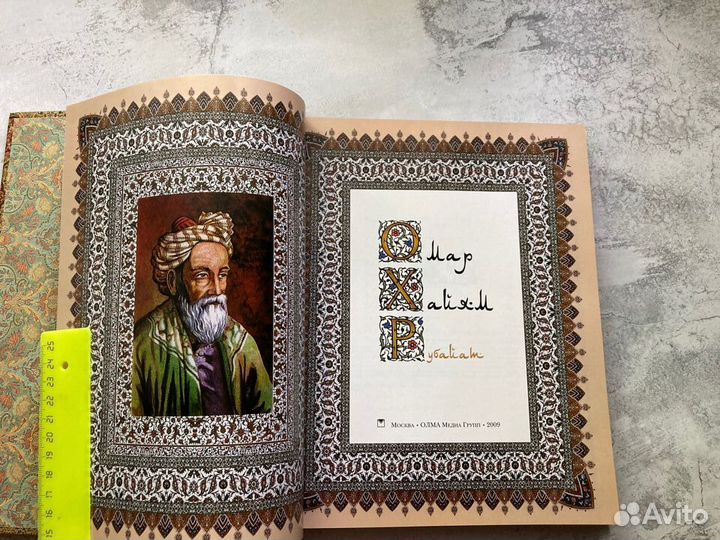 Омар
Хайям
Рубайат
Москва • ОЛМА Медиа Групп • 2009
25
24
23
22
21
20
19
18
17
16
15
Avito